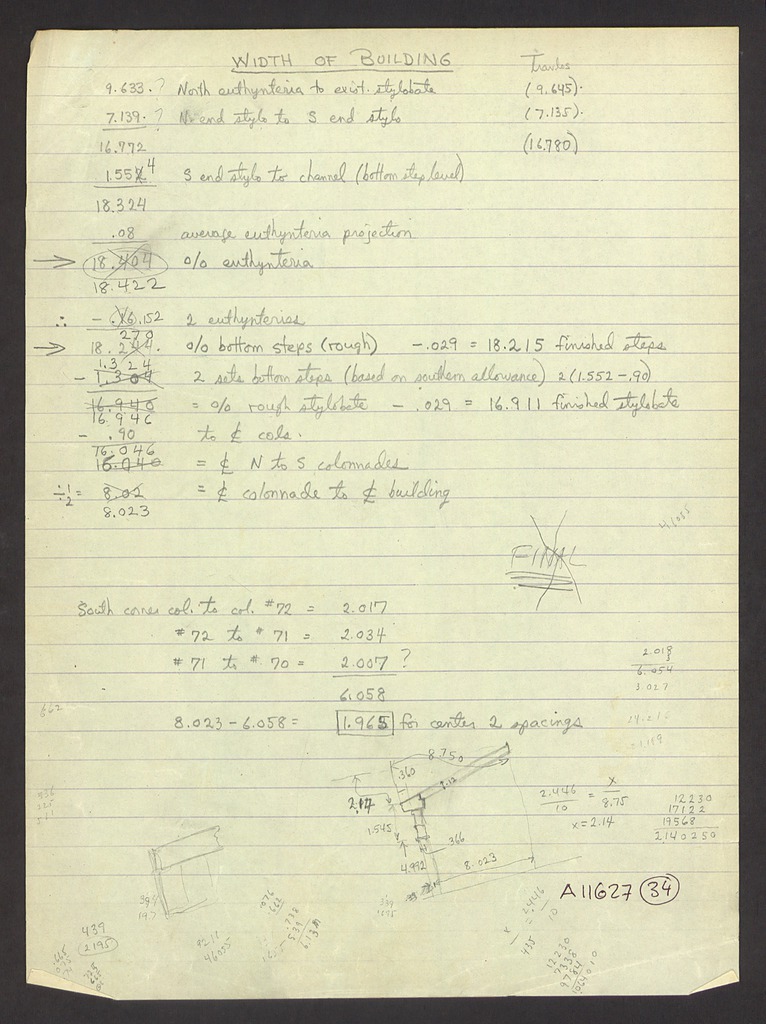 WIDTH OF BUILDING
Travlos
9.633.? North euthynteria to exist. stylobate (9.645).
7.139.? N. end stylo to S end stylo (7.135).
16.772 (16.780)
1.552 4 S end stylo to channel (bottom step level)
18.324
.08 average euthynteria projection
→ 18.404 o/o euthynteria
18.422
∴ - .16.152 2 euthynterias
270
→ 18.244. o/o bottom steps (rough) -.029 = 18.215 finished steps
1.324
- 1.304 2 sets bottom steps (based on southern allowance) 2(1.552-.90)
16.940 = o/o rough stylobate - .029 = 16.911 finished stylobate
16.946
- .90 to ₵ cols.
16.046
16.040 = ₵ N to S colonnades
÷ ½ = 8.02 = ₵ colonnade to ₵ building
8.023
4.1055
FINAL
South corner col. to col. #72 = 2.017
#72 to #71 = 2.034
#71 to #70 = 2.007 ?
6.058
2.018
3
6.054
3.027
662
8.023 - 6.058 = 1.965 for center 2 spacings
8.750
.360
2.14
1.545
.366
4.992
8.023
2.446/10 = x/8.75
x = 2.14
12230
17122
19568
2140250
A11627 34
439
2195
x/435 = 2.446/10
12230
7338
9784
1064010